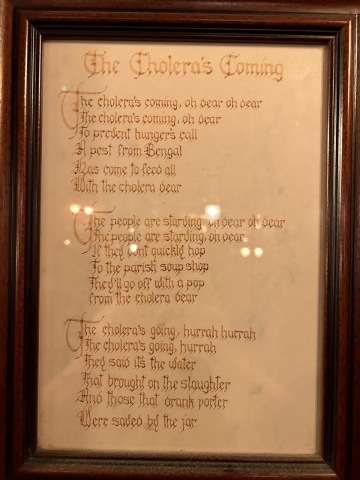 The Cholera's Coming
The cholera's coming, oh dear oh dear
The cholera's coming, oh dear
To prevent hunger's call
A pest from Bengal
Has come to feed all
With the cholera dear
The people are starving, oh dear oh dear
The people are starving, oh dear
If they don't quickly hop
To the parish soup shop
They'll go off with a pop
From the cholera dear
The cholera's going, hurrah hurrah
The cholera's going, hurrah
They said it's the water
That brought on the slaughter
And those that drank porter
Were saved by the jar